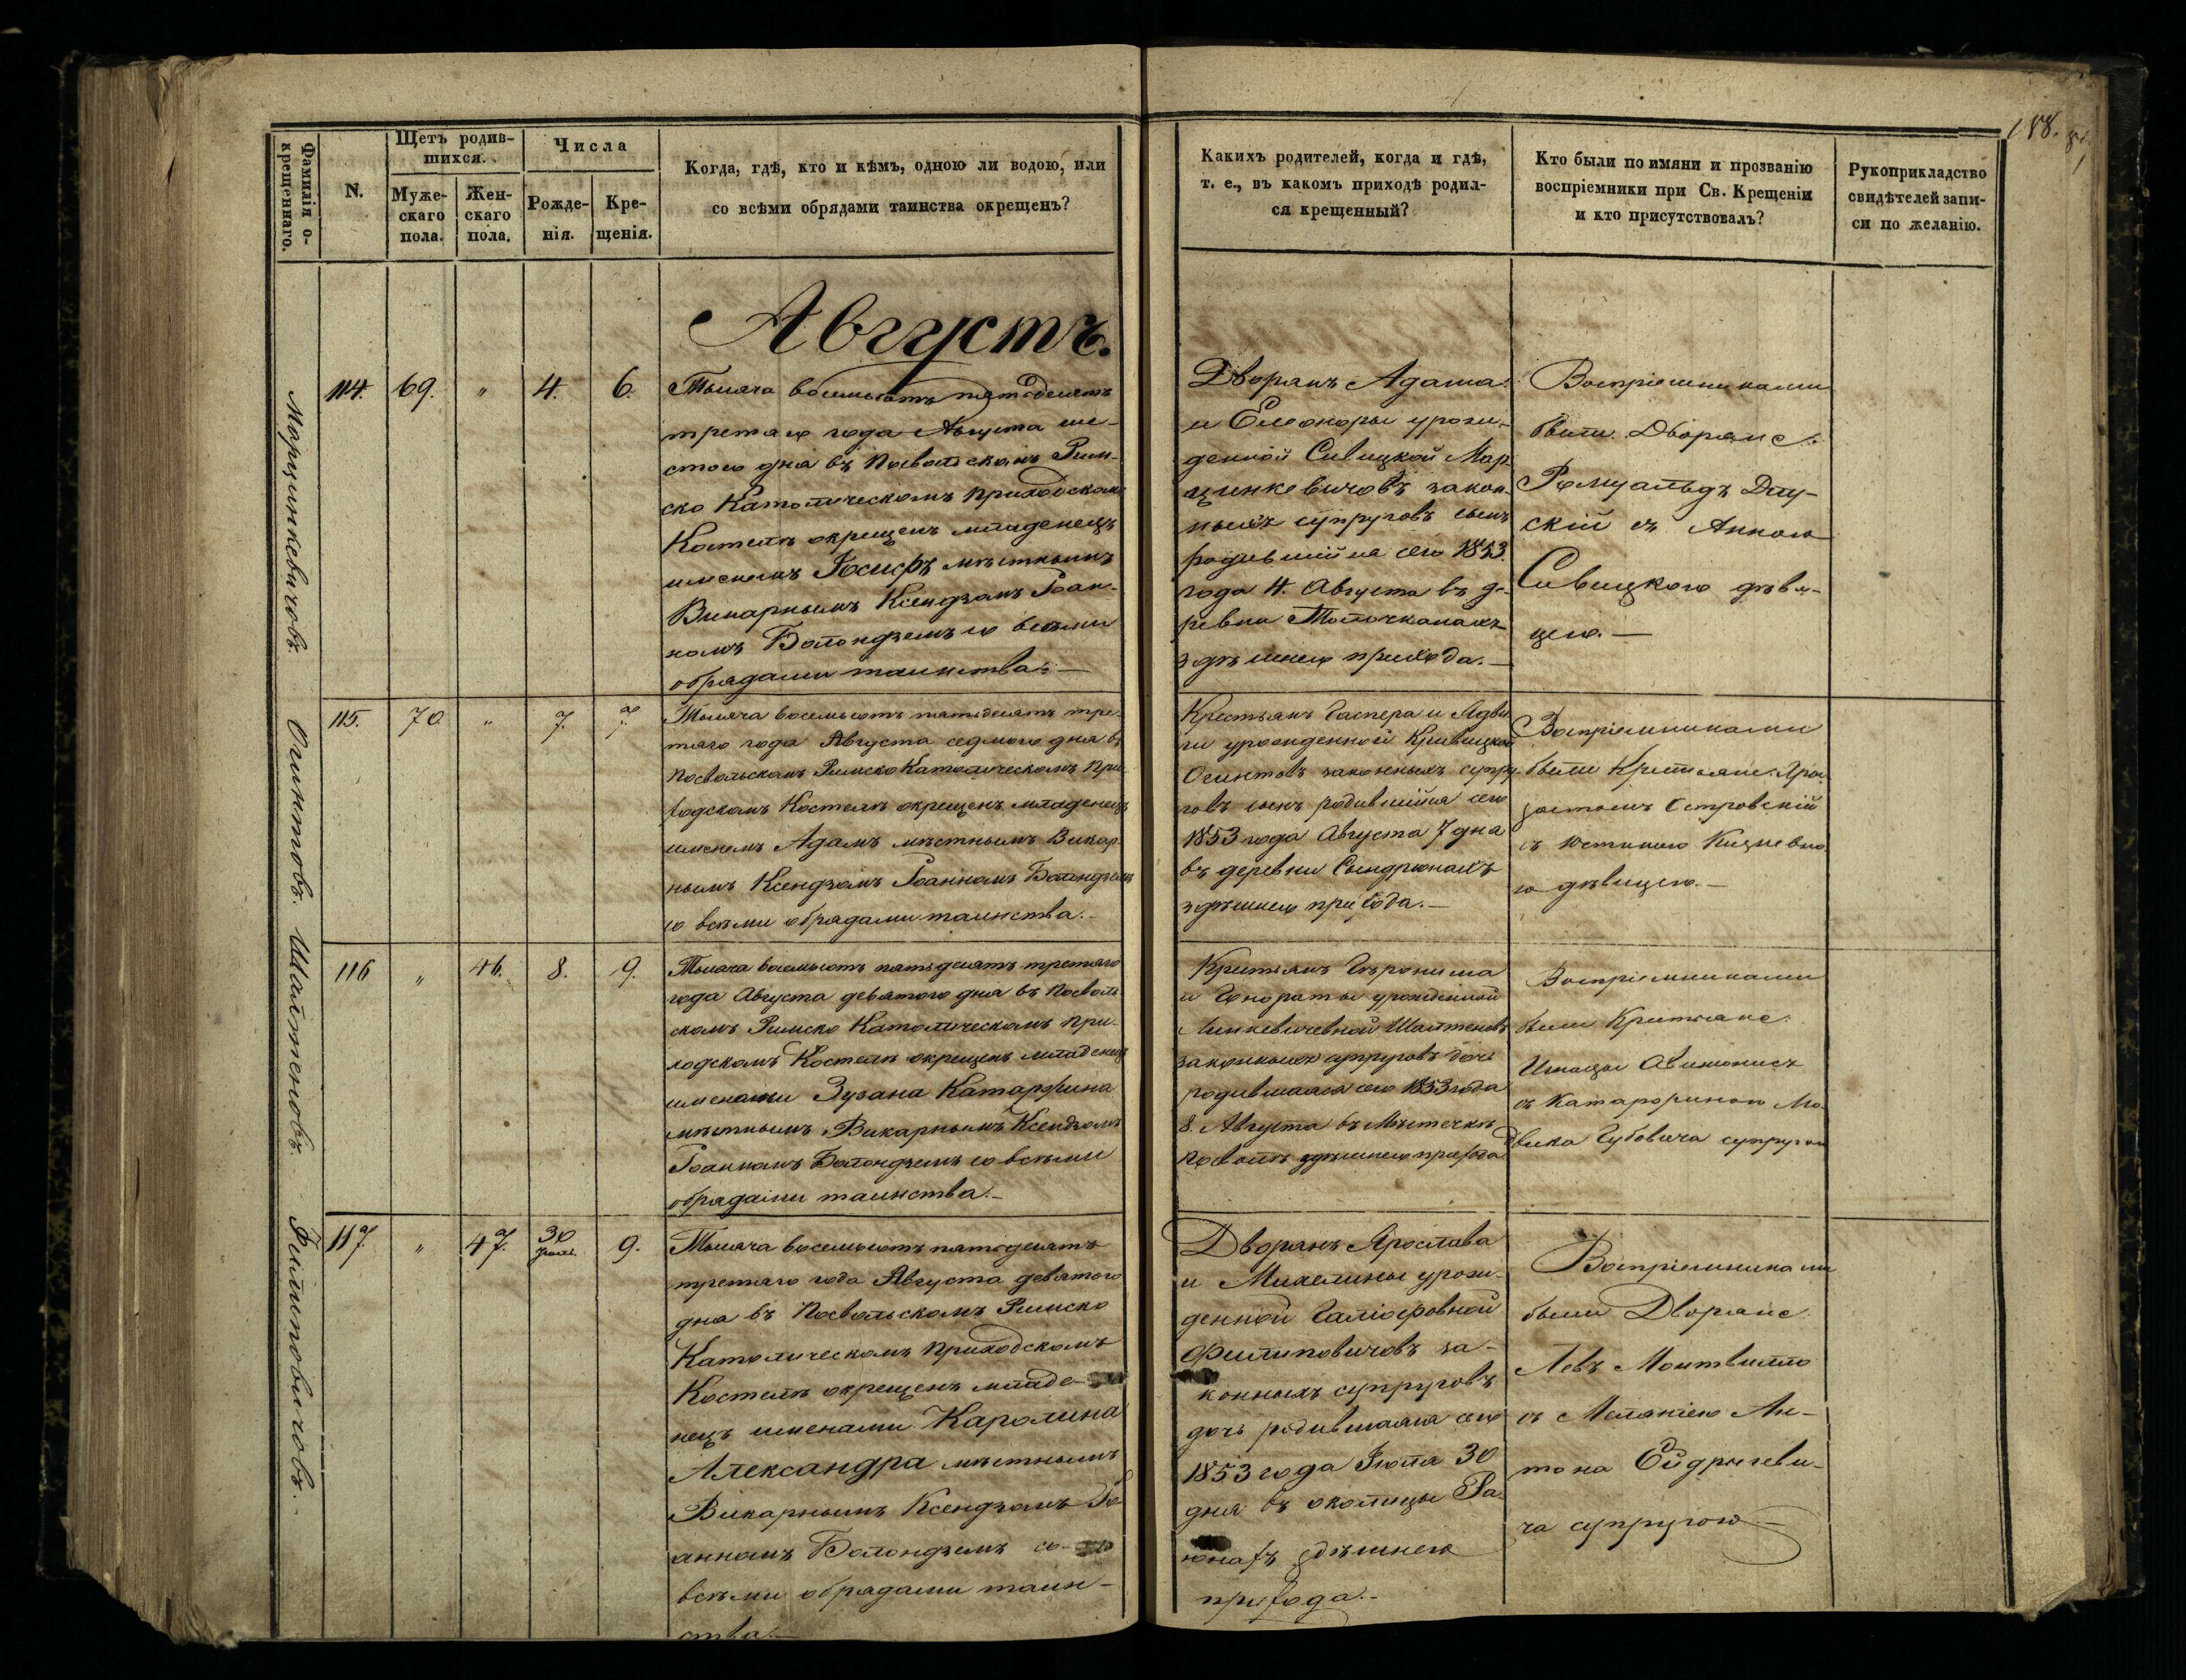 188.
Фамилія о-
крещеннаго.
N.
Щетъ родив-
шихся.
Муже-
скаго
пола.
Жен-
скаго
пола.
Числа
Рожде-
нія.
Кре-
щенія.
Когда, гдѣ, кто и кѣмъ, одною ли водою, или
со всѣми обрядами таинства окрещенъ?
Какихъ родителей, когда и гдѣ,
т. е., въ какомъ приходѣ родил-
ся крещенный?
Кто были по имяни и прозванію
воспріемники при Св. Крещеніи
и кто присутствовалъ?
Рукоприкладство
свидѣтелей запи-
си по желанію.
Августъ.
Марцинкевичовъ.
114.
69.
"
4.
6.
Тысяча восемьсотъ пятьдесятъ
третаго года Августа ше-
стого дня въ Посвольскомъ Рим-
ско Католическомъ Приходскомъ
Костелѣ окрещенъ младенецъ
именемъ Іосифъ мѣстнымъ
Викарнымъ Ксендзомъ Іоан-
номъ Болондземъ со всѣми
обрядами таинства.—
Дворянъ Адама
и Елеоноры урож-
денной Сивицкой Мар-
цинкевичовъ закон-
ныхъ супруговъ сынъ
родившійся сего 1853
года 4. Августа въ де-
ревни Толочканахъ
здѣшнего прихода.—
Воспріемниками
были Дворяне
Ромуальдъ
скій съ Анною
Сивицкого дѣви-
цею.—
Огинтовъ.
115.
70
"
7.
7.
Тысяча восемьсотъ пятьдесятъ тре-
тяго года Августа седмого дня въ
Посвольскомъ Римско Католическомъ При-
ходскомъ Костелѣ окрещенъ младенецъ
именемъ Адамъ мѣстнымъ Викар-
нымъ Ксендзомъ Іоанномъ Болондземъ
со всѣми обрядами таинства.—
Крестьянъ Гаспера и Ядви-
ги урожденной Кривицкой
Огинтовъ законныхъ супру-
говъ сынъ родившійся сего
1853 года Августа 7 дня
въ деревни Сындрюнахъ
здѣшнего прихода.—
Воспріемниками
были Крестьяне
Островскій
съ Юстиною
ю дѣвицею.—
Шалтеновъ.
116
"
46.
8.
9.
Тысяча восемьсотъ пятьдесятъ третяго
года Августа девятого дня въ Посволь-
скомъ Римско Католическомъ При-
ходскомъ Костелѣ окрещенъ младенецъ
именами Зузана Катаржина
мѣстнымъ Викарнымъ Ксендзомъ
Іоанномъ Болондземъ со всѣми
обрядами таинства.—
Крестьянъ Геронима
и Гонораты урожденной
Линкевичевной Шалтеновъ
законныхъ супруговъ дочь
родившаяся сего 1853 года
8. Августа въ Мѣстечкѣ
Посволѣ здѣшнего прихода
Воспріемниками
были Крестьяне
Игнацы
съ Катаржиною Лю-
двика Губовича супругою
Филиповичовъ.
117.
"
47.
30
Іюль.
9.
Тысяча восемьсотъ пятьдесятъ
третяго года Августа девятого
дня въ Посвольскомъ Римско
Католическомъ Приходскомъ
Костелѣ окрещенъ младе-
нецъ именами Каролина
Александра мѣстнымъ
Викарнымъ Ксендзомъ Іо-
анномъ Болондземъ со
всѣми обрядами таин-
ства.—
Дворянъ Ярослава
и Михелины урож-
денной
Филиповичовъ за-
конныхъ супруговъ
дочь родившаяся сего
1853 года Іюля 30
дня въ околицы Ра-
юнахъ здѣшнего
прихода.—
Воспріемниками
были Дворяне
Левъ Монтвилло
съ Меланіею Ан-
тона Ейдригеви-
ча супругою —